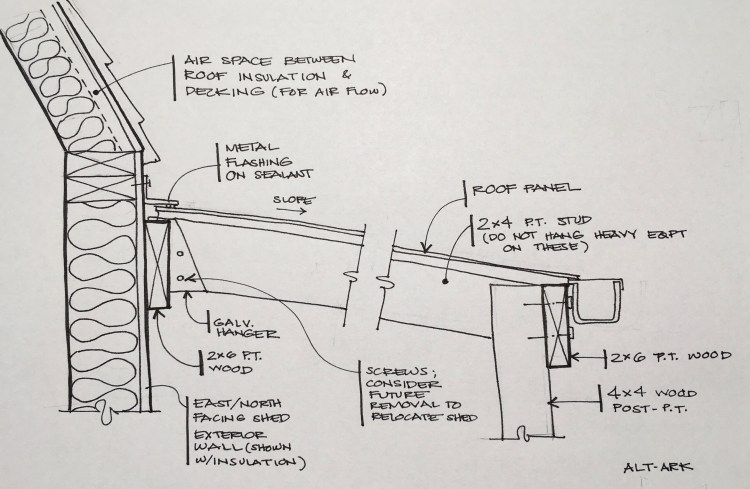 AIR SPACE BETWEEN
ROOF INSULATION &
DECKING (FOR AIR FLOW)
METAL
FLASHING
ON SEALANT
SLOPE
ROOF PANEL
2x4 P.T. STUD
(DO NOT HANG HEAVY EQPT
ON THESE)
GALV.
HANGER
2x6 P.T.
WOOD
SCREWS;
CONSIDER
FUTURE
REMOVAL TO
RELOCATE SHED
2x6 P.T. WOOD
4x4 WOOD
POST - P.T.
EAST/NORTH
FACING SHED
EXTERIOR
WALL (SHOWN
W/INSULATION)
ALT-ARK